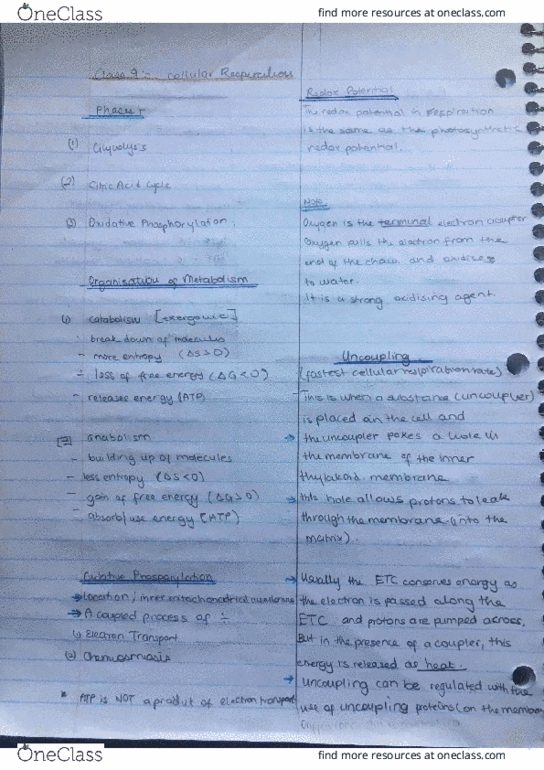 OneClass
find more resources at oneclass.com
Class 9 :- Cellular Respiration
Phases
(1) Glycolysis
(2) Citric Acid Cycle
(3) Oxidative Phosphorylation
Organisation of Metabolism
(1) catabolism [exergonic]
- break down of molecules
- more entropy (ΔS>0)
- loss of free energy (ΔG<0)
- releases energy (ATP)
[2] anabolism
- building up of molecules
- less entropy (ΔS<0)
- gain of free energy (ΔG>0)
- absorb/use energy (ATP)
→ location; inner mitochondrial membrane
→ A coupled process of :-
(1) Electron Transport
(2) Chemiosmosis
* ATP is NOT a product of electron transport
Redox Potential
The redox potential in respiration
is the same as the photosynthetic
redox potential.
Note
Oxygen is the terminal electron acceptor
Oxygen pulls the electron from the
end of the chain and oxidizes
to water.
It is a strong oxidising agent.
Uncoupling
(fastest cellular respiration rate)
- This is when a substance (uncoupler)
is placed on the cell and
→ the uncoupler pokes a hole in
the membrane of the inner
thylakoid membrane
→ this hole allows protons to leak
through the membrane (into the
matrix).
→ Usually the ETC conserves energy as
the electron is passed along the
ETC and protons are pumped across.
But in the presence of a coupler, this
energy is released as heat.
→ Uncoupling can be regulated with the
use of uncoupling proteins (on the membran
OneClass
find more resources at oneclass.com